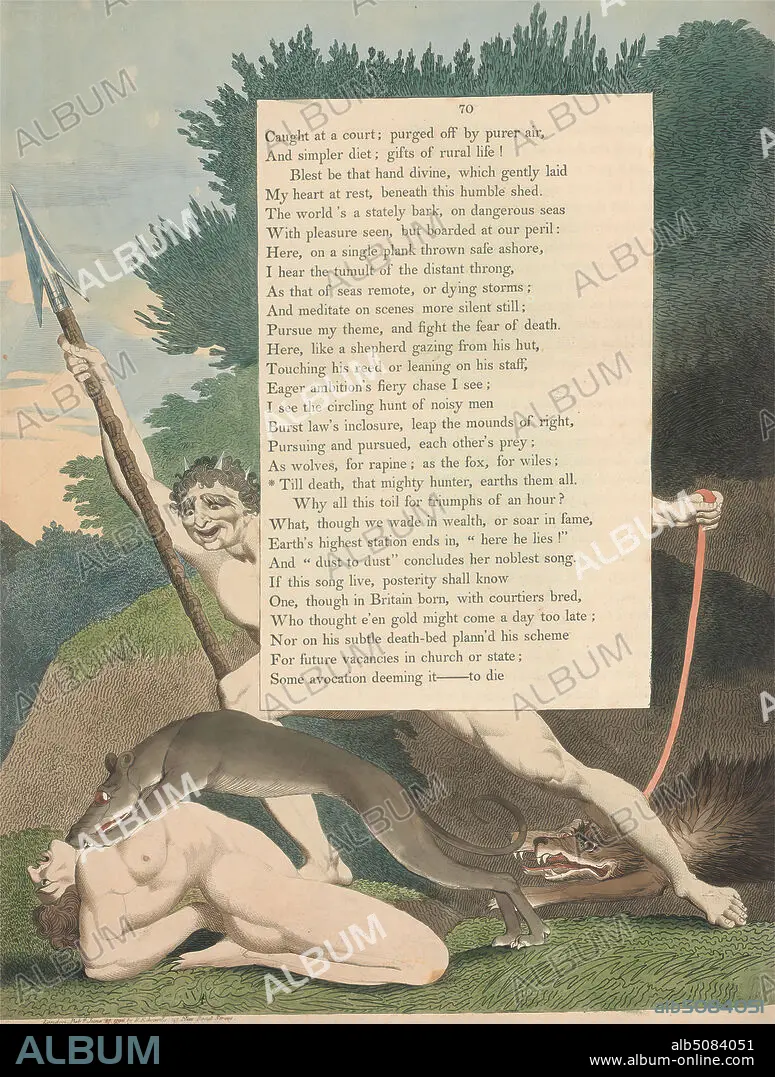 70
Caught at a court; purged off by purer air,
And simpler diet; gifts of rural life !
Blest be that hand divine, which gently laid
My heart at rest, beneath this humble shed.
The world 's a stately bark, on dangerous seas
With pleasure seen, but boarded at our peril:
Here, on a single plank thrown safe ashore,
I hear the tumult of the distant throng,
As that of seas remote, or dying storms;
And meditate on scenes more silent still;
Pursue my theme, and fight the fear of death.
Here, like a shepherd gazing from his hut,
Touching his reed or leaning on his staff,
Eager ambition's fiery chase I see;
I see the circling hunt of noisy men
Burst law's inclosure, leap the mounds of right,
Pursuing and pursued, each other's prey;
As wolves, for rapine; as the fox, for wiles;
* Till death, that mighty hunter, earths them all.
Why all this toil for triumphs of an hour?
What, though we wade in wealth, or soar in fame,
Earth's highest station ends in, “ here he lies !”
And “ dust to dust” concludes her noblest song.
If this song live, posterity shall know
One, though in Britain born, with courtiers bred,
Who thought e'en gold might come a day too late;
Nor on his subtle death-bed plann'd his scheme
For future vacancies in church or state;
Some avocation deeming it——to die
ALBUM
alb5084051
ALBUM
alb5084051
www.album-online.com